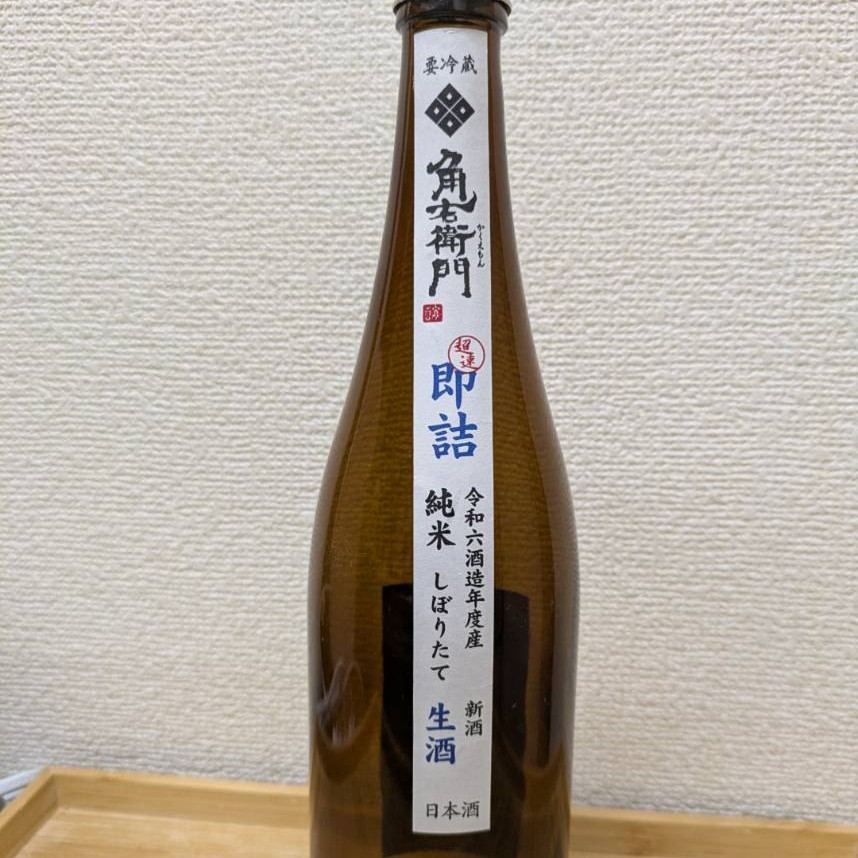 要冷蔵
角右衛門
かくえもん
超速
即詰
令和六酒造年度産
純米 しぼりたて
新酒
生酒
日本酒